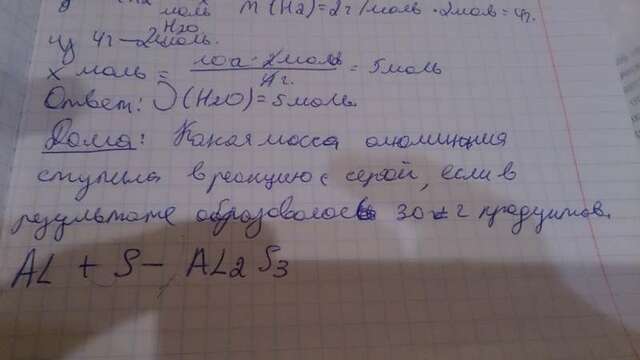 моль m (H2)=2г/моль · 2моль=4г.
H2O
4г — 2моль.
x моль = 10г · 2моль / 4г. = 5моль
Ответ: (H2O)=5моль
Дома: Какая масса алюминия
ступила в реакцию с серой, если в
результате образовалось 30 г продуктов.
AL + S — AL2S3